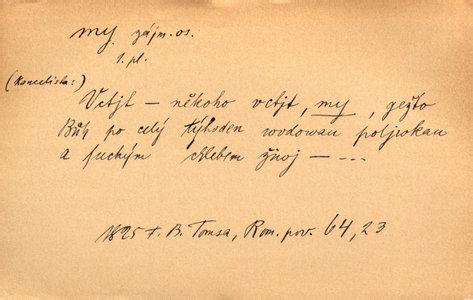 my zájm. os.
1. pl.
(Koncelista:)
Vctjt – někoho vctjt, my, gežto
Bůh po celý týhoden wodowau poljwkau
a suchým chlebem žiwj – – –
1825 F. B. Tomsa, Rom. pov. 64, 23